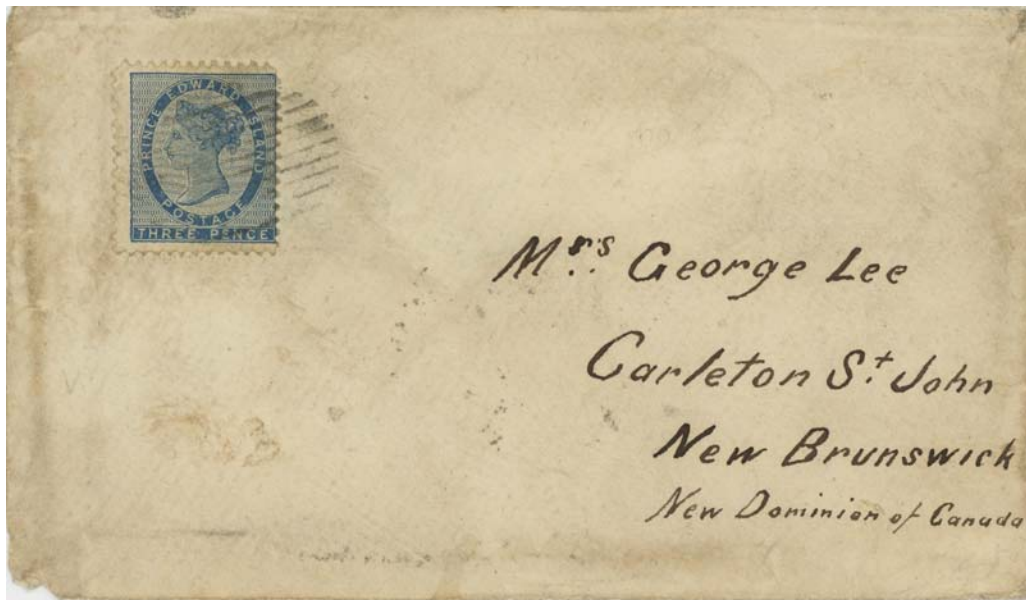 PRINCE EDWARD ISLAND
POSTAGE
THREE PENCE
Mrs. George Lee
Carleton St. John
New Brunswick
New Dominion of Canada